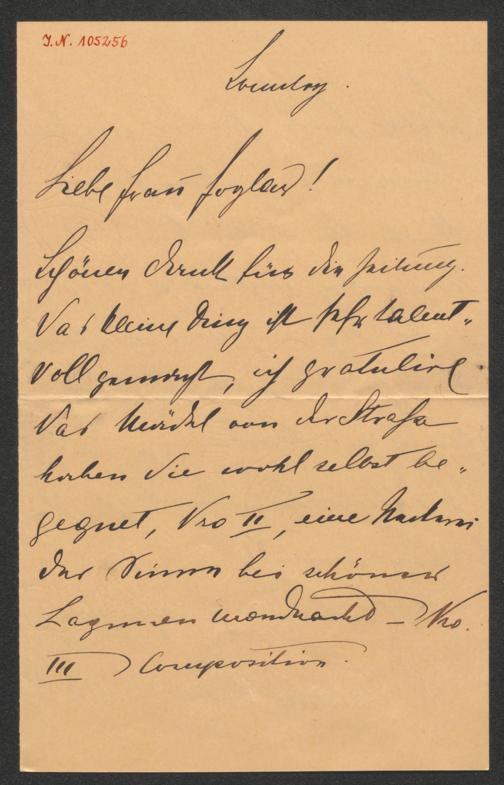 I.N. 105256
Sonntag.
Liebe Frau Foglar!
Schönen Dank für die Zeitung.
Das kleine Ding ist sehr talent-
voll gemacht, ich gratulire.
Das Mädel von der Straße
haben Sie wohl selbst be-
gegnet, Nro II, eine
der bei schöner
Lagunen Mondnacht – Nro.
III Composition.